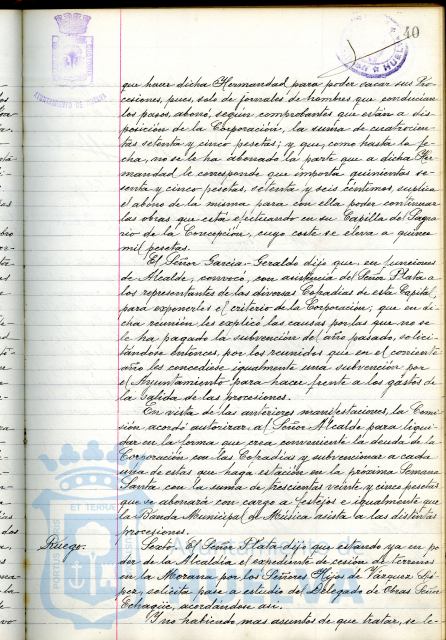 40
AYUNTAMIENTO DE HUELVA
que hacer dicha Hermandad para poder sacar sus Pro-
cesiones, pues, solo de jornales de hombres que conducian
los pasos, abonó, segun comprobantes que están a dis-
posición de la Corporación, la suma de cuatrocien-
tas setenta y cinco pesetas; y que, como hasta la fe-
cha, no se le ha abonado la parte que a dicha Her-
mandad le corresponde que importa quinientas se-
senta y cinco pesetas, setenta y seis centimos, suplica
el abono de la misma para con ella poder continuar
las obras que está efectuando en su Capilla del Sagra-
rio de la Concepción, cuyo coste se eleva a quince
mil pesetas.
El Señor Garcia-Geraldo dijo que, en funciones
de Alcalde, convocó, con asistencia del Señor Plata a
los representantes de las diversas Cofradias de esta Capital,
para exponerles el criterio de la Corporación; que en di-
cha reunión les explicó las causas por las que no se
le ha pagado la subvención del año pasado, solici-
tándose entonces, por los reunidos que en el corriente
año les concediese igualmente una subvención por
el Ayuntamiento para hacer frente a los gastos de
la salida de las procesiones.
En vista de las anteriores manifestaciones, la Comi-
sión acordó autorizar al Señor Alcalde para liqui-
dar en la forma que crea conveniente la deuda de la
Corporación con las Cofradias y subvencionar a cada
una de estas que haga estación en la próxima Semana
Santa con la suma de trescientas veinte y cinco pesetas
que se abonará con cargo a festejos e igualmente que
la Banda Municipal de Música asista a las distintas
procesiones.
Ruego.
Sexto. El Señor Plata dijo que estando ya en po-
der de la Alcaldia el expediente de cesión de terrenos
en la Morana por los Señores Hijos de Vazquez Ló-
pez, solicita pase a estudio del Delegado de Obras Señor
Echagüe, acordándose asi.
Y no habiendo mas asuntos de que tratar, se le-